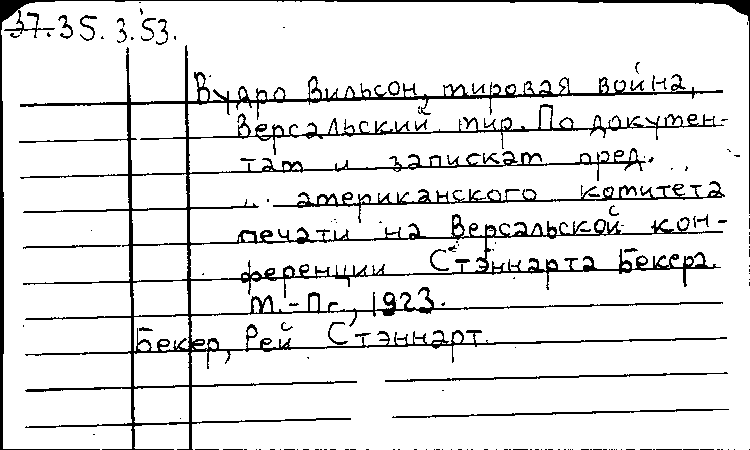 37. 35. 3.53.
Вудро Вильсон, мировая война,
Версальский мир. По докумен-
там и запискам пред.
американского комитета
печати на Версальской кон-
ференции Стэннарта Бекера.
М.-Пг., 1923.
Бекер, Рей Стэннарт.